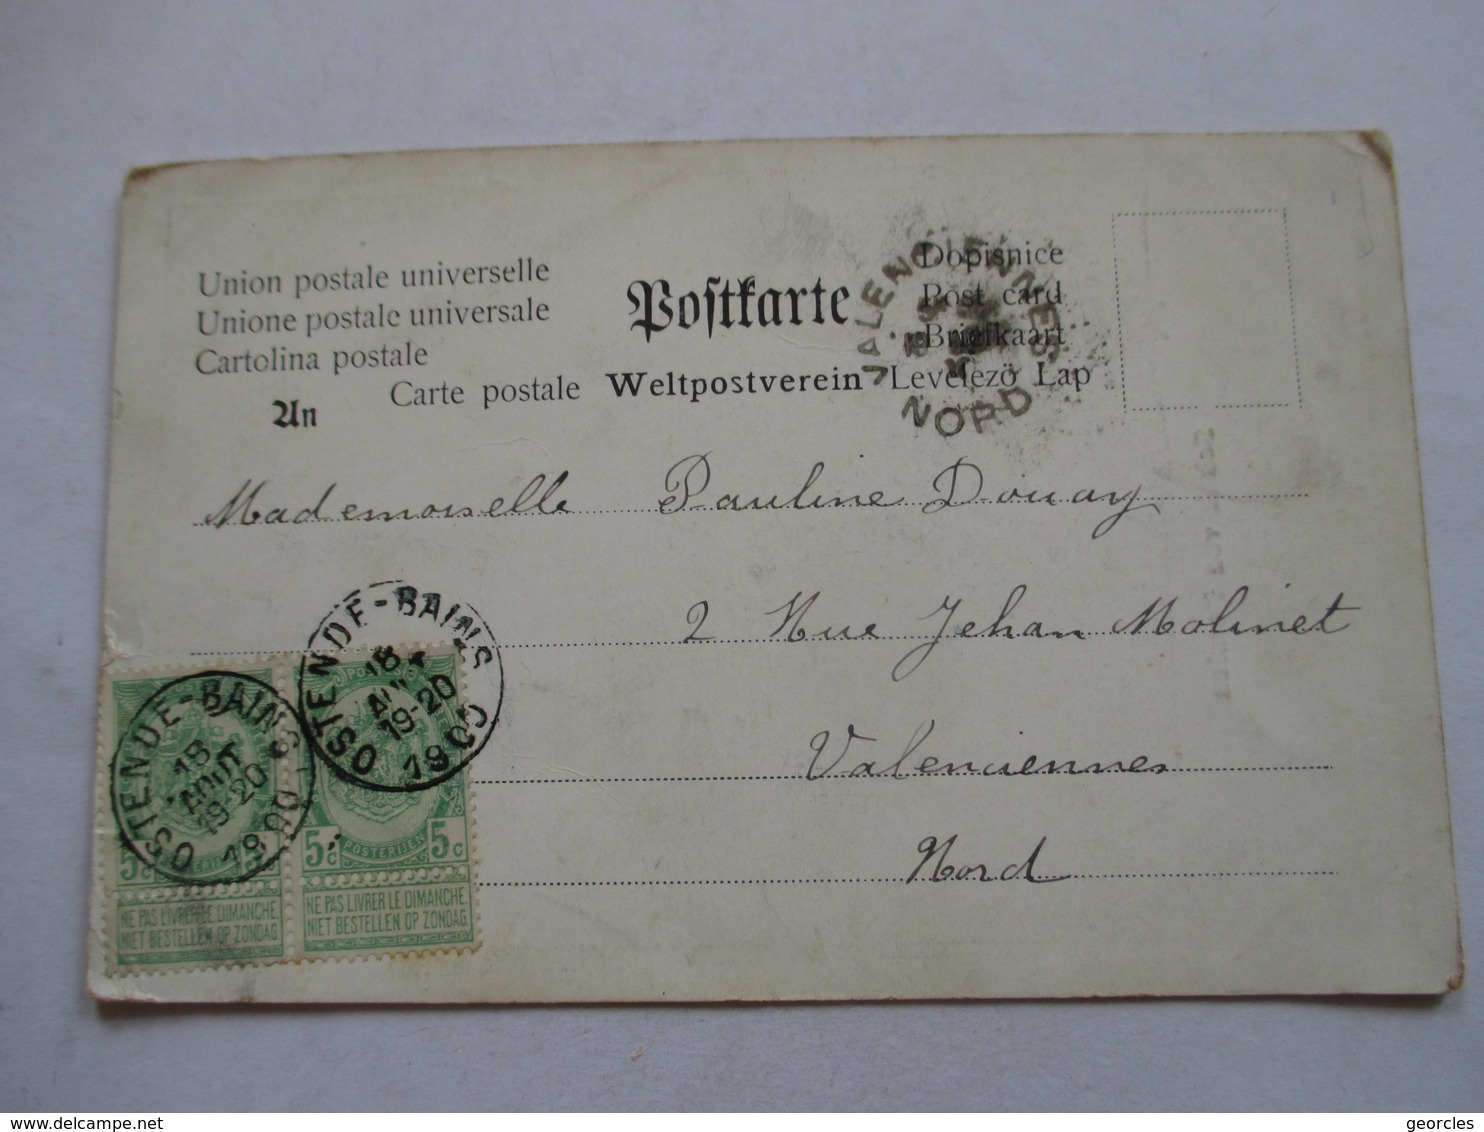 Union postale universelle
Unione postale universale
Cartolina postale
Carte postale
An
Postkarte
Weltpostverein
Dopisnice
Post card
Briefkaart
Levelezö Lap
VALENCIENNES
NORD
Mademoiselle Pauline Douay
2 Rue Jehan Molinet
Valenciennes
Nord
OSTENDE-BAINS
18
AOUT
19-20
1900
OSTENDE-BAINS
18
19-20
1900
5c
5c 5c
POSTERIJEN
NE PAS LIVRER LE DIMANCHE
NIET BESTELLEN OP ZONDAG
NE PAS LIVRER LE DIMANCHE
NIET BESTELLEN OP ZONDAG
delcampe.net
georcles